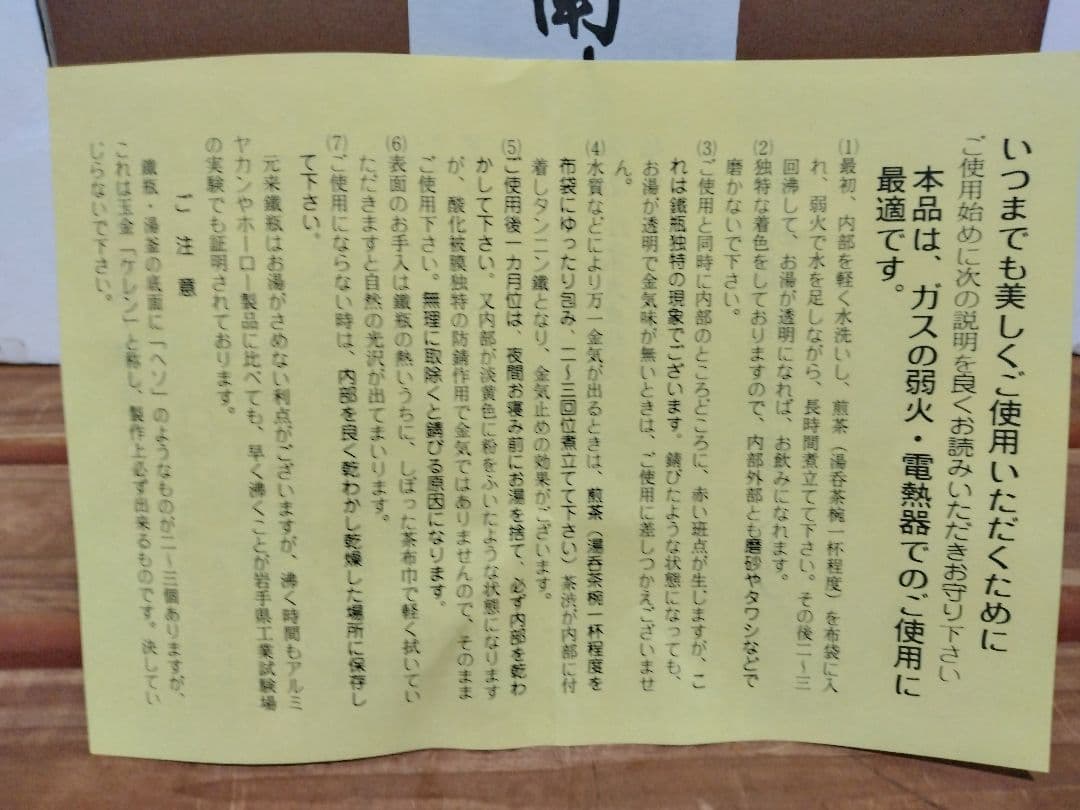 いつまでも美しくご使用いただくために
ご使用始めに次の説明を良くお読みいただきお守り下さい
本品は、ガスの弱火・電熱器でのご使用に
最適です。
(1)最初、内部を軽く水洗いし、煎茶（湯呑茶椀一杯程度）を布袋に入
れ、弱火で水を足しながら、長時間煮立てて下さい。その後二〜三
回沸して、お湯が透明になれば、お飲みになれます。
(2)独特な着色をしておりますので、内部外部とも磨砂やタワシなどで
磨かないで下さい。
(3)ご使用と同時に内部のところどころに、赤い斑点が生じますが、こ
れは鐵瓶独特の現象でございます。錆びたような状態になっても、
お湯が透明で金気味が無いときは、ご使用に差しつかえございませ
ん。
(4)水質などにより万一金気が出るときは、煎茶（湯呑茶椀一杯程度を
布袋にゆったり包み、二〜三回位煮立てて下さい）茶渋が内部に付
着しタンニン鐵となり、金気止めの効果がございます。
(5)ご使用後一カ月位は、夜間お寝み前にお湯を捨て、必ず内部を乾わ
かして下さい。又内部が淡黄色に粉をふいたような状態になります
が、酸化被膜独特の防錆作用で金気ではありませんので、そのまま
ご使用下さい。無理に取除くと錆びる原因になります。
(6)表面のお手入は鐵瓶の熱いうちに、しぼった茶布巾で軽く拭いてい
ただきますと自然の光沢が出てまいります。
(7)ご使用にならない時は、内部を良く乾わかし乾燥した場所に保存し
て下さい。
元来鐵瓶はお湯がさめない利点がございますが、沸く時間もアルミ
ヤカンやホーロー製品に比べても、早く沸くことが岩手県工業試験場
の実験でも証明されております。
ご注意
鐵瓶・湯釜の底面に「ヘソ」のようなものが二〜三個ありますが、
これは玉金「ケレン」と称し、製作上必ず出来るものです。決してい
じらないで下さい。